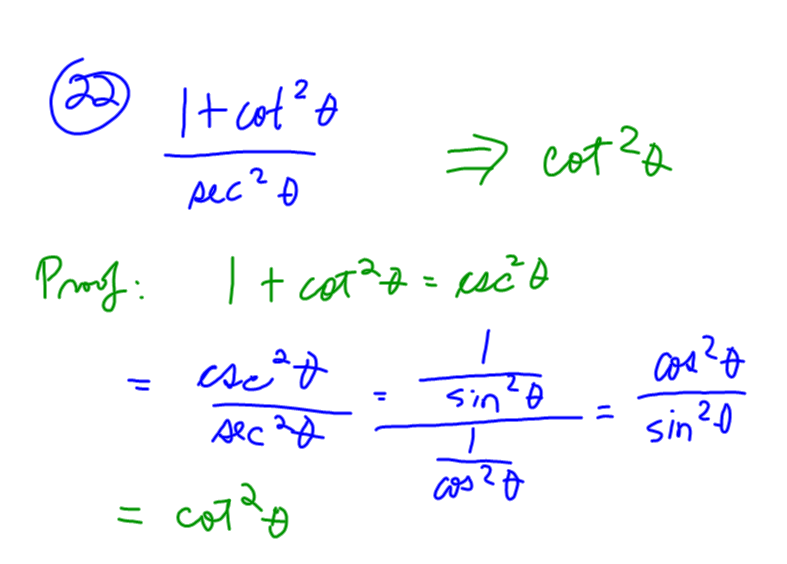 22 (1 + cot²θ)/(sec²θ) ⇒ cot²θ
Proof: 1 + cot²θ = csc²θ
= (csc²θ)/(sec²θ) = (1/(sin²θ))/(1/(cos²θ)) = (cos²θ)/(sin²θ)
= cot²θ